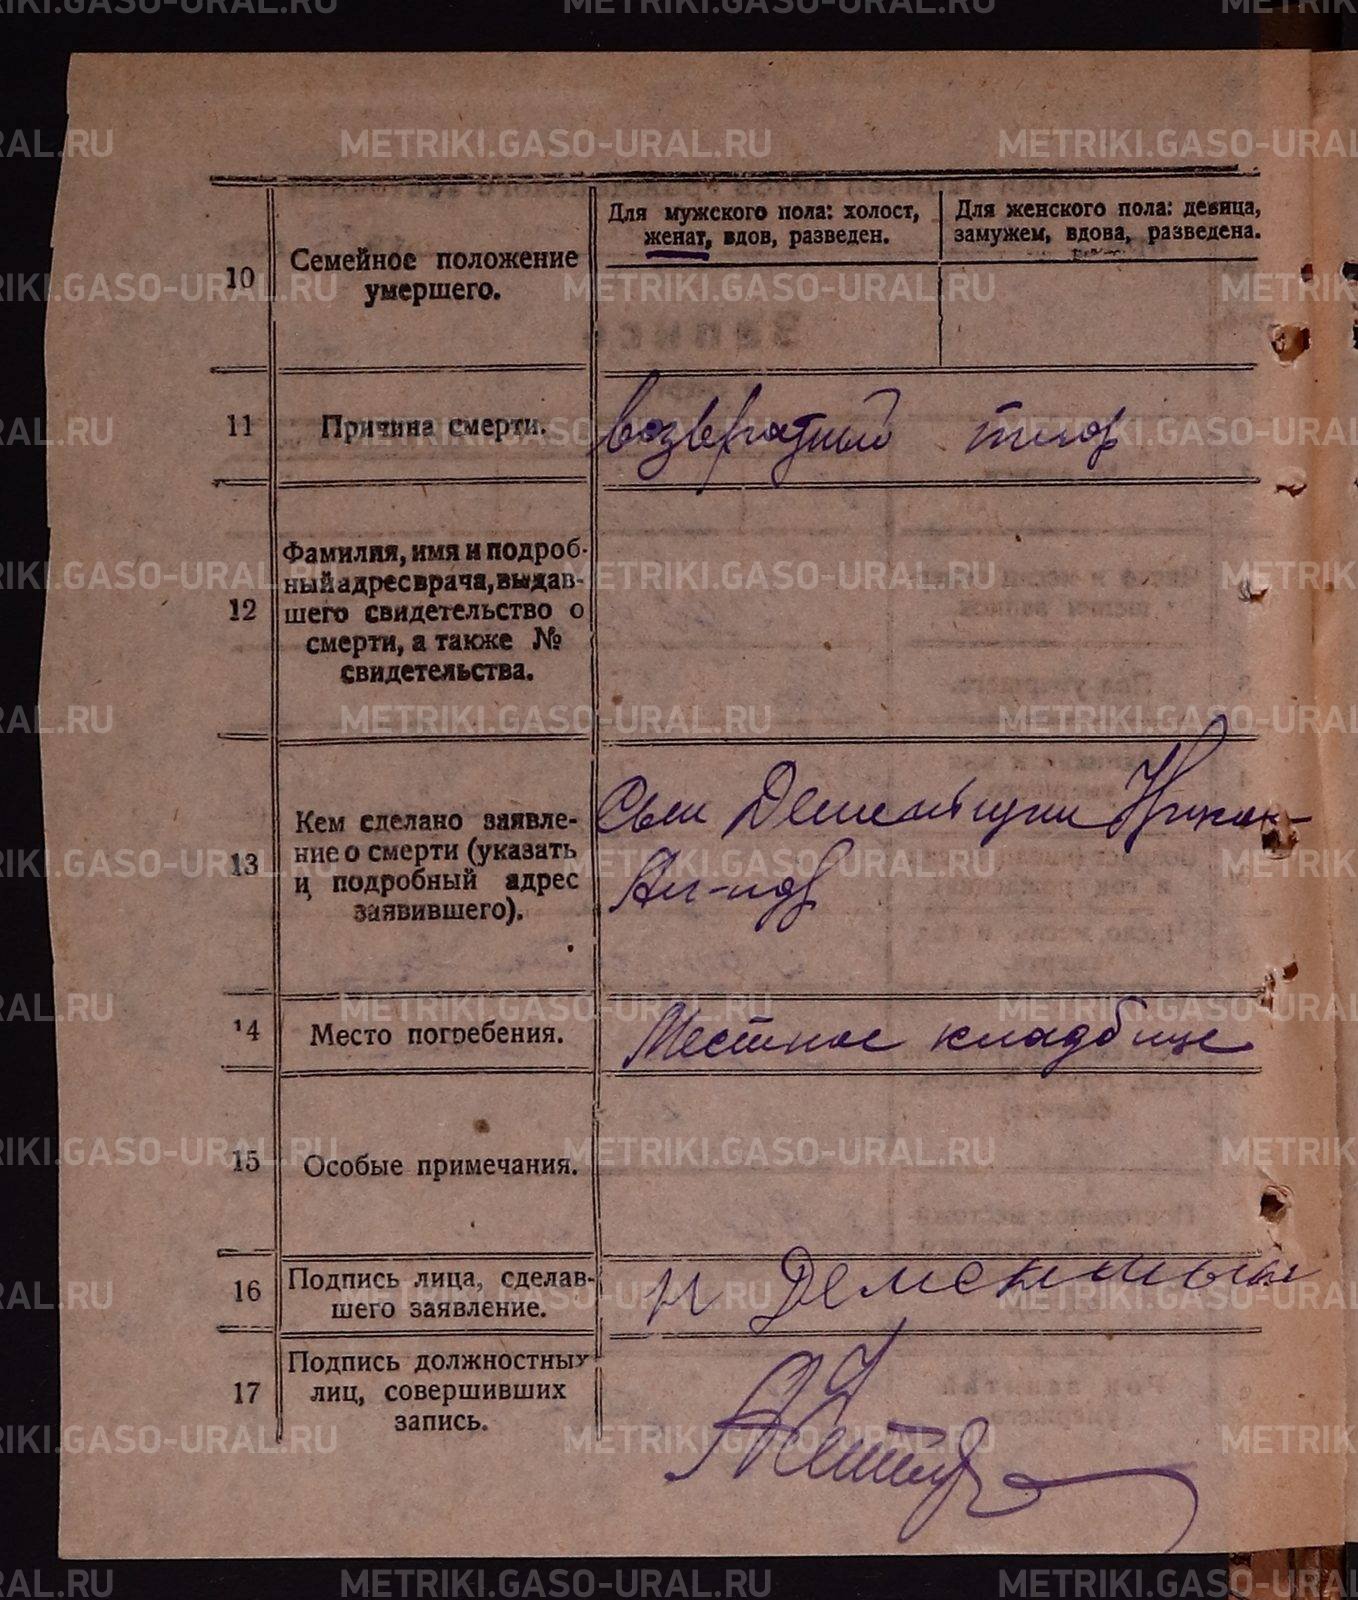 METRIKI.GASO-URAL.RU
10
Семейное положение
умершего.
Для мужского пола: холост,
женат, вдов, разведен.
Для женского пола: девица,
замужем, вдова, разведена.
11
Причина смерти.
возвратный тиф
12
Фамилия, имя и подроб-
ный адрес врача, выдав-
шего свидетельство о
смерти, а также №
свидетельства.
13
Кем сделано заявле-
ние о смерти (указать
и подробный адрес
заявившего).
Сын
14
Место погребения.
Местное кладбище
15
Особые примечания.
16
Подпись лица, сделав-
шего заявление.
17
Подпись должностных
лиц, совершивших
запись.